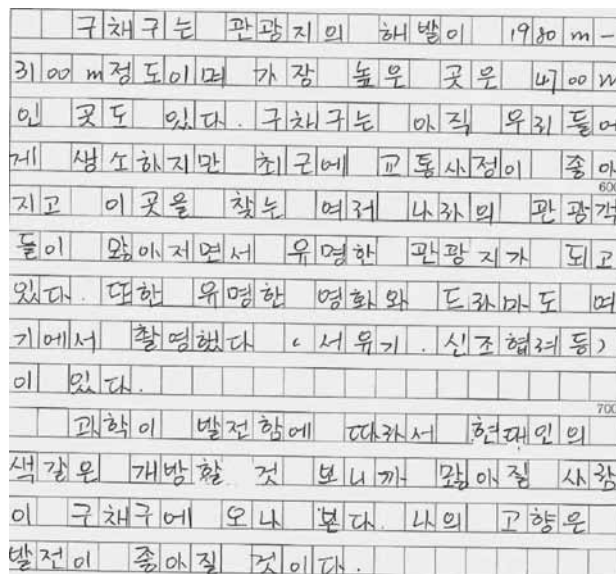 구채구는 관광지의 해발이 1980m-
3100m정도이며 가장 높은 곳은 4700m
인 곳도 있다. 구채구는 아직 우리 들에
게 생소하지만 최근에 교통사정이 좋아
600
지고 이곳을 찾는 여러 나라의 관광객
들이 많아저면서 유명한 관광지가 되고
있다. 또한 유명한 영화와 드라마도 며
기에서 촬영했다 (서유기. 신조협려등)
이 있다.
700
과학이 발전함에 따라서 현대인의
색갈은 개방할 것 보니까 많아질 사람
이 구채구에 오나 본다. 나의 고향은
발전이 좋아질 것이다.